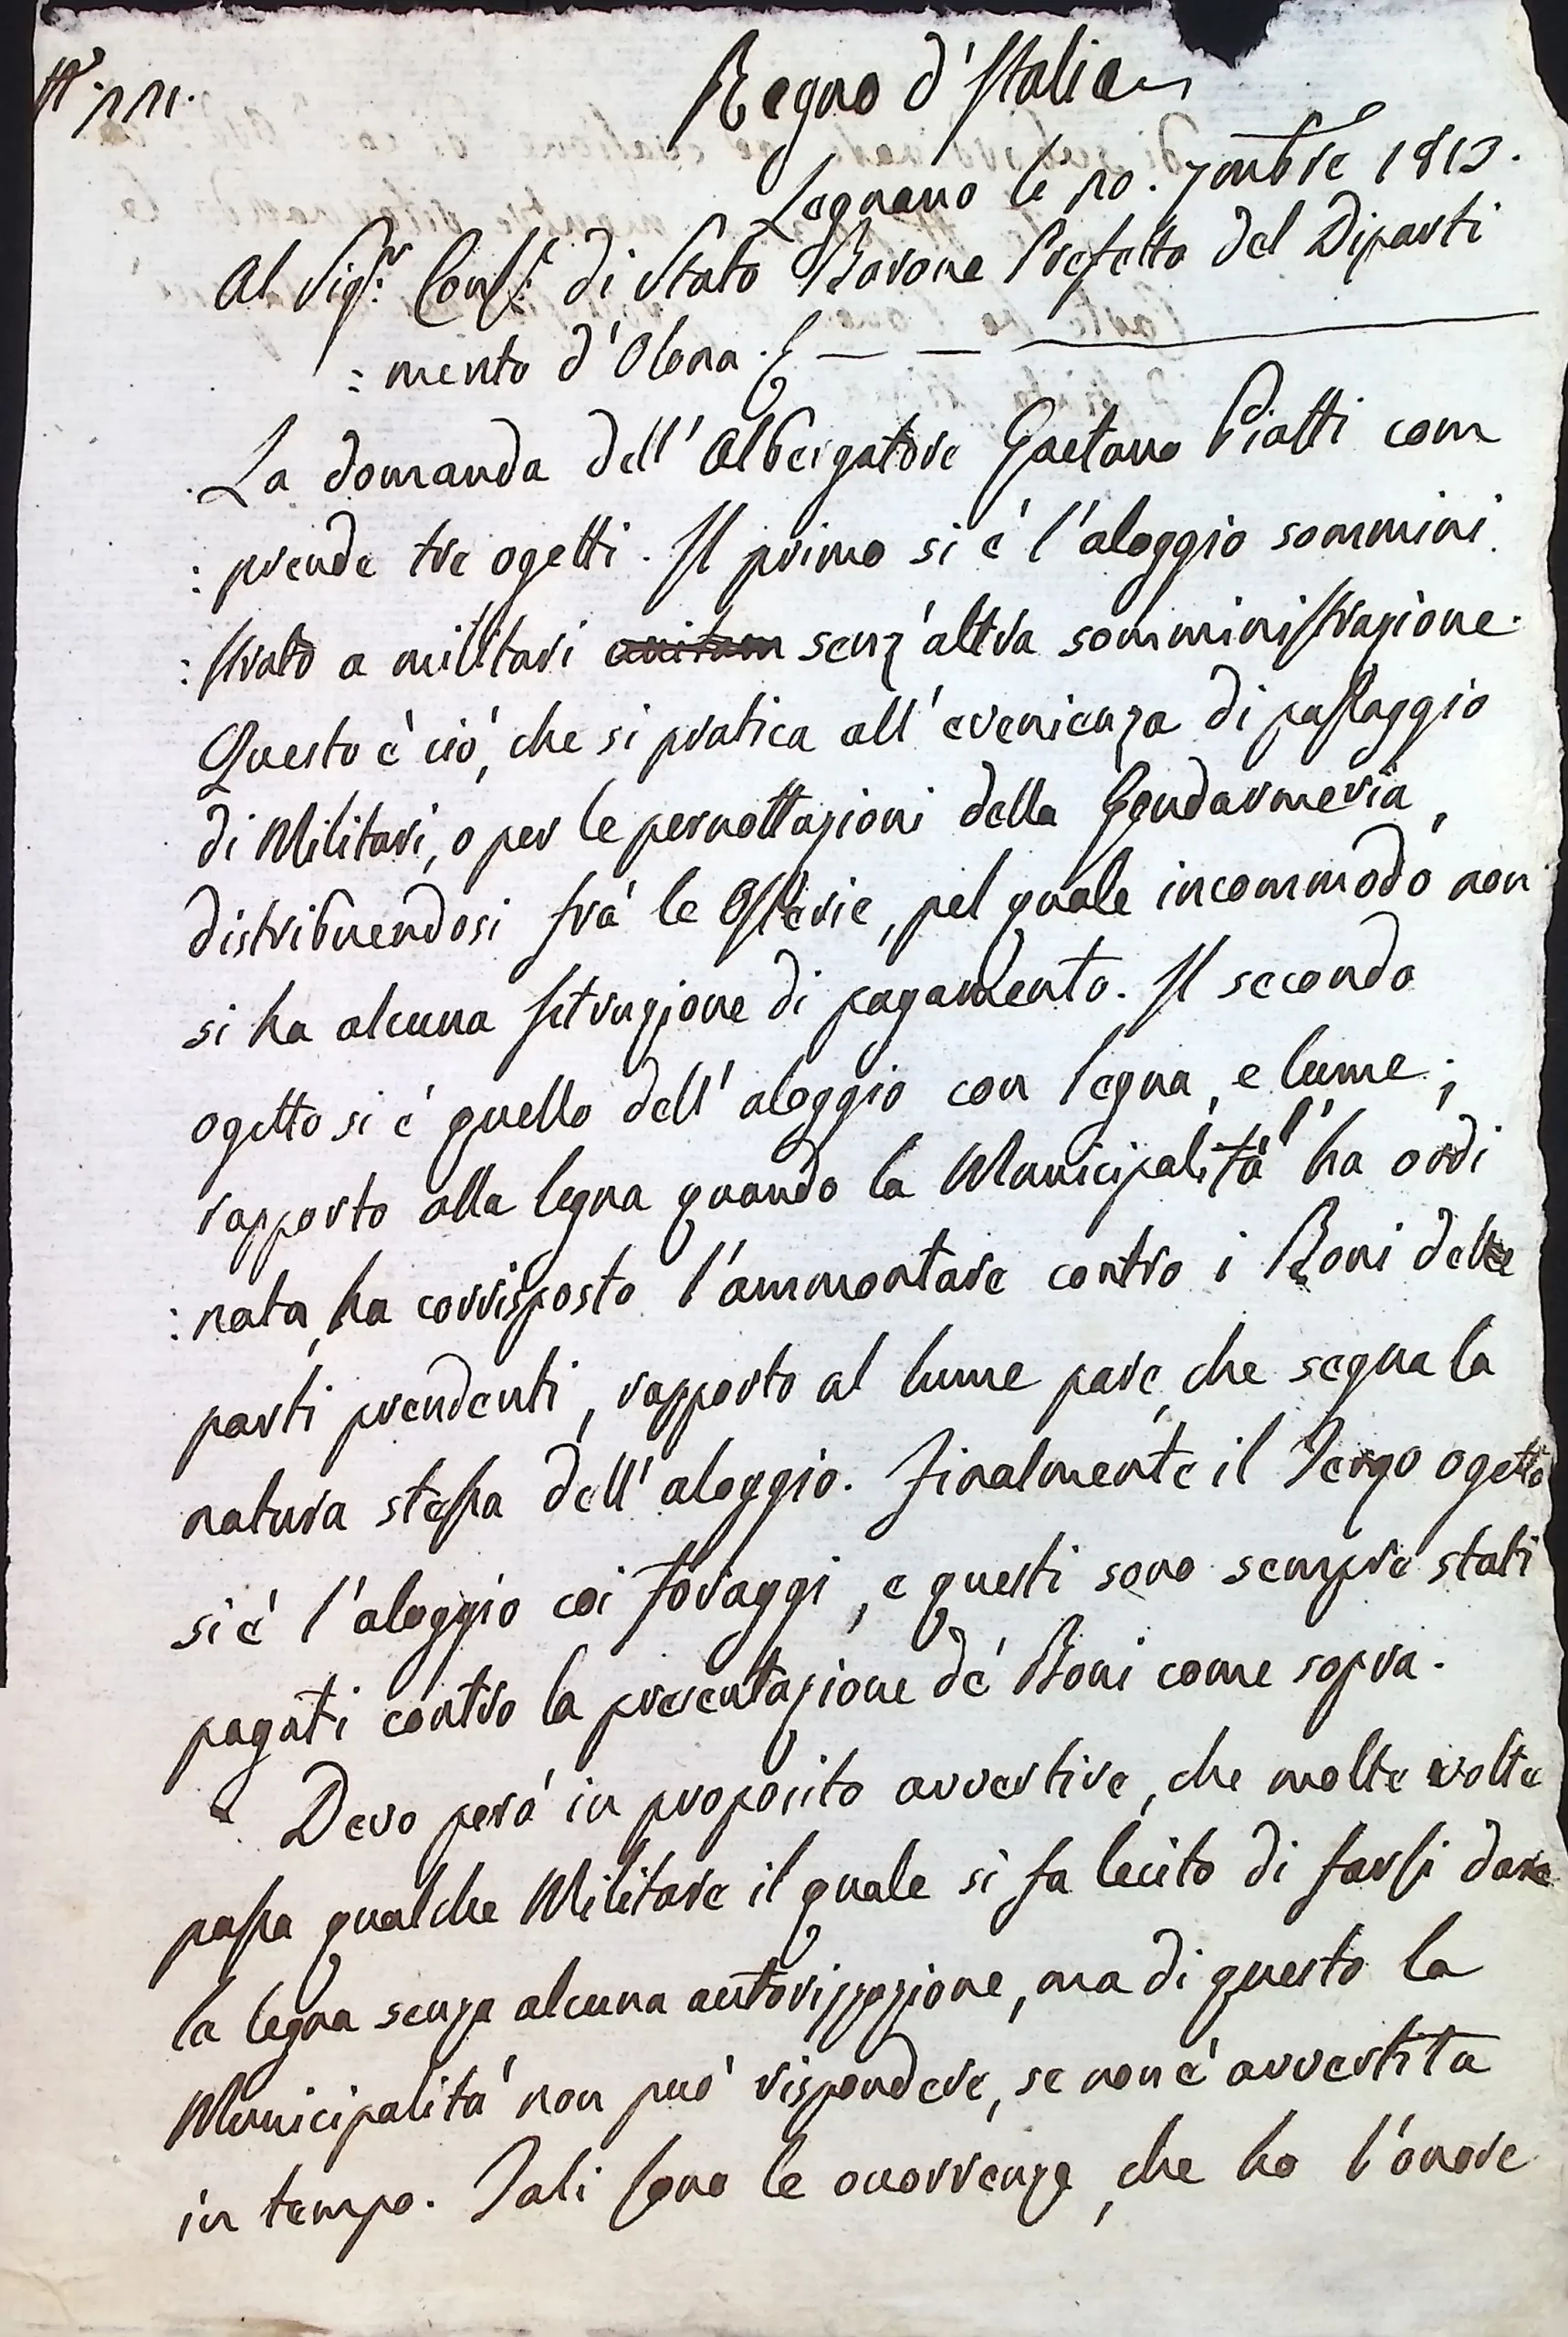 Regno d'Italia
Legnano le 20. 7mbre 1813.
Al Sigr. Conse. di Stato Barone Prefetto del Diparti
: mento d'Olona.
La domanda dell'Albergatore Gaetano Piatti com
: prende tre ogetti. Il primo si è l'aloggio sommini
: strato a militari senz'altra somministrazione.
Questo è ciò, che si pratica all'evenienza di passaggio
di Militari, o per le pernottazioni della Gendarmeria,
distribuendosi frà le Osterie, pel quale incommodo non
si ha alcuna Istruzione di pagamento. Il secondo
ogetto si è quello dell'aloggio con legna, e lume;
rapporto alla legna quando la Municipalità l'ha ordi
: nata, ha corrisposto l'ammontare contro i Boni delle
parti prendenti, rapporto al lume pare, che segua la
natura stessa dell'aloggio. Finalmente il Terzo ogetto
si è l'aloggio coi foraggi, e questi sono sempre stati
pagati contro la presentazione de' Boni come sopra.
Devo però in proposito avvertire, che molte volte
passa qualche Militare il quale si fa lecito di farsi dare
la legna senza alcuna autorizzazione, ma di questo la
Municipalità non può rispondere, se non è avvertita
in tempo. Tali sono le occorrenze, che ho l'onore